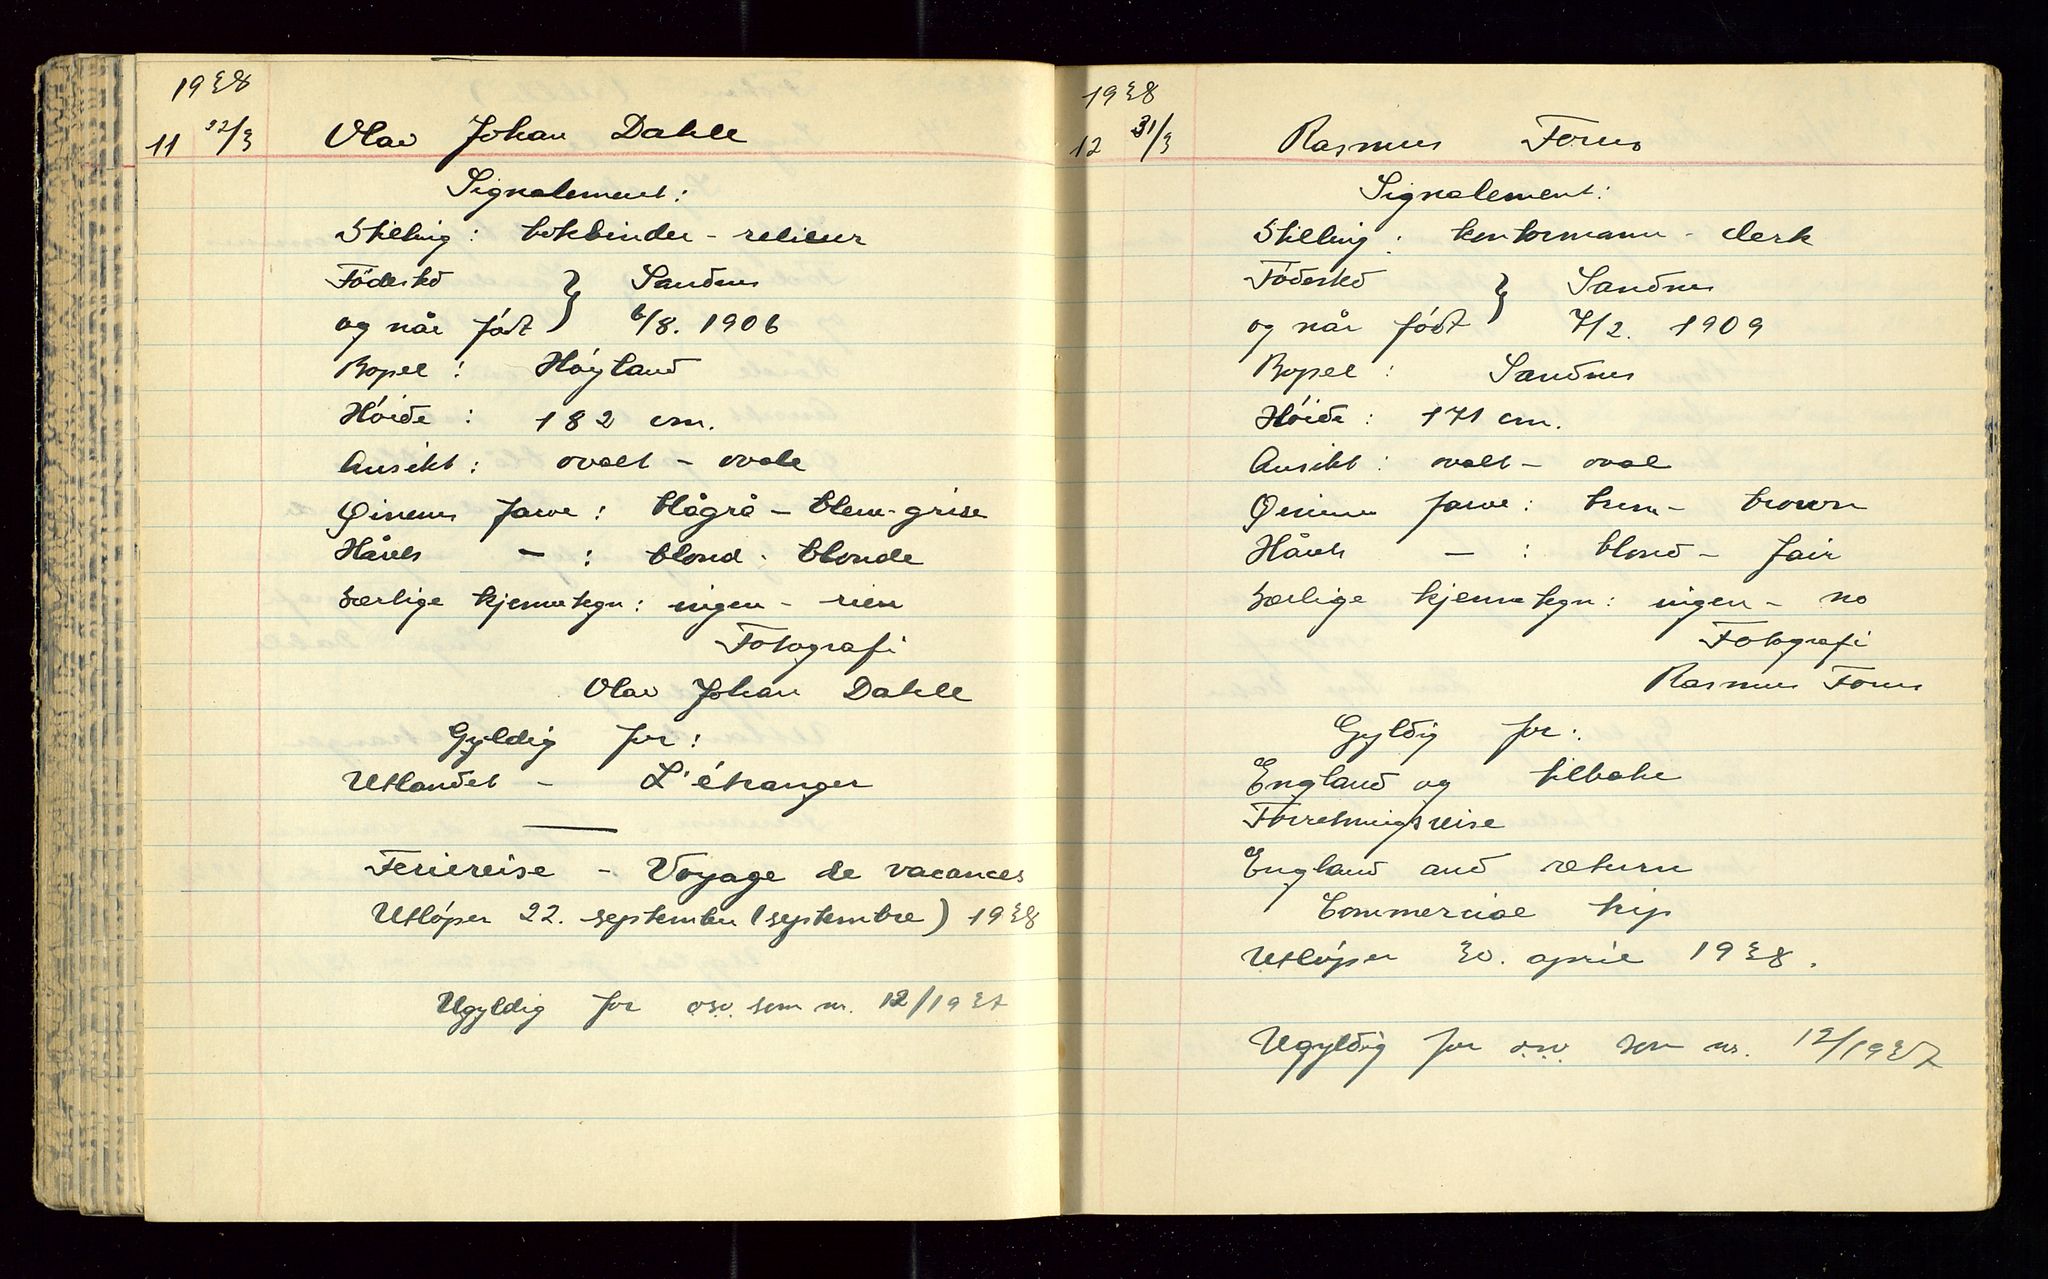 1938
11 22/3 Olav Johan Dahle
Signalement:
Stilling: bokbinder - relieur
Fødested } Sandnes
og når født } 6/8. 1906
Bopel: Høyland
Høide: 182 cm.
Ansikt: ovalt - ovale
Øinenes farve: blågrå - bleue-grise
Hårets - : blond - blonde
Særlige kjennetegn: ingen - rien
Fotografi
Olav Johan Dahle
Gyldig for:
Utlandet - L'étranger
Feriereise - Voyage de vacances
Utløper 22. september (septembre) 1938
Ugyldig for osv. som nr. 12/1937
1938
12 31/3 Rasmus Forus
Signalement:
Stilling: kontormann - clerk
Fødested } Sandnes
og når født } 7/2. 1909
Bopel: Sandnes
Høide: 171 cm.
Ansikt: ovalt - oval
Øinenes farve: brun - brown
Hårets - : blond - fair
Særlige kjennetegn: ingen - no
Fotografi
Rasmus Forus
Gyldig for:
England og tilbake
Forretningsreise
England and return
Commercial trip
Utløper 30. april 1938.
Ugyldig for osv. som nr. 12/1937